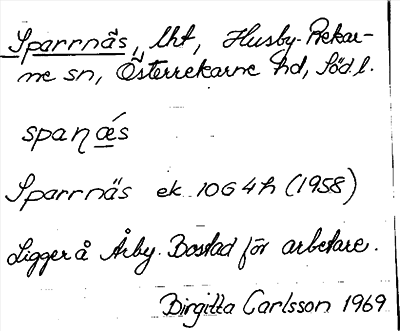 Sparrnäs, lht, Husby-Rekar-
ne sn, Österrekarne hd, Söd.l.
spaŋǽs
Sparrnäs ek. 10G4h (1958)
Ligger å Årby. Bostad för arbetare.
Birgitta Carlsson 1969